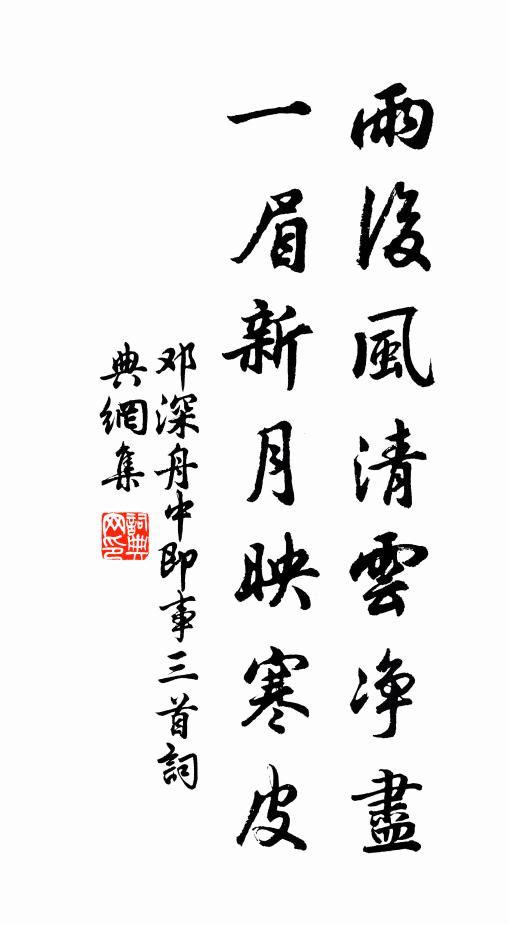 雨後風清雲净盡
一眉新月映寒皮
邓深舟中即事三首詞
典網集
詞典
网印